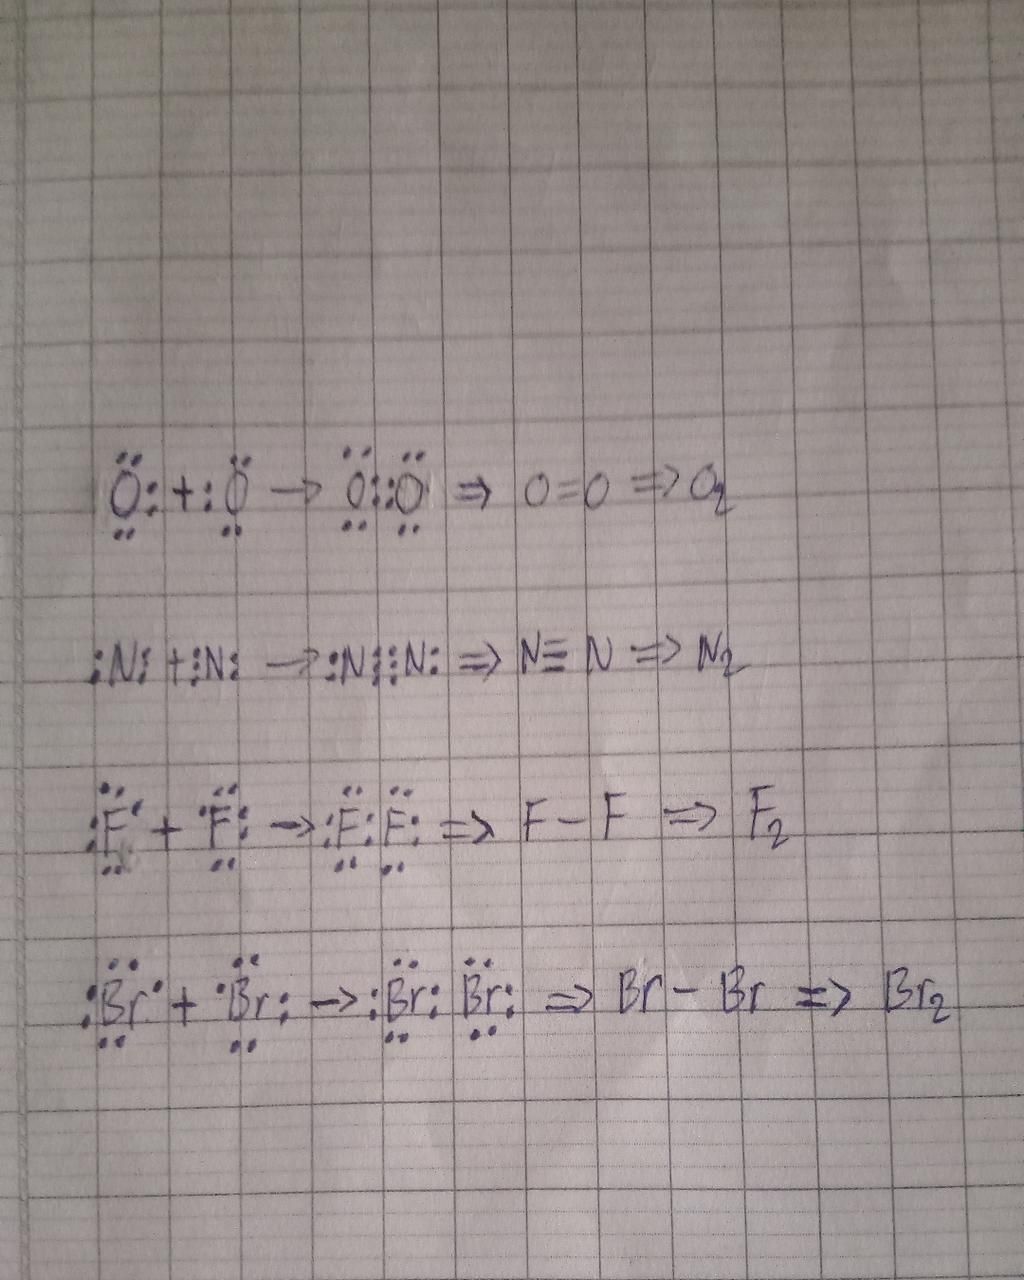 :Ö̤: + :Ö̤ → Ö̤::Ö̤ ⇒ O=O ⇒ O₂
:N⫶ + ⫶N: → :N⫶⫶N: ⇒ N≡N ⇒ N₂
:F̤̈· + ·F̤̈: → :F̤̈:F̤̈: ⇒ F–F ⇒ F₂
:B̤̈r· + ·B̤̈r: → :B̤̈r:B̤̈r: ⇒ Br–Br ⇒ Br₂